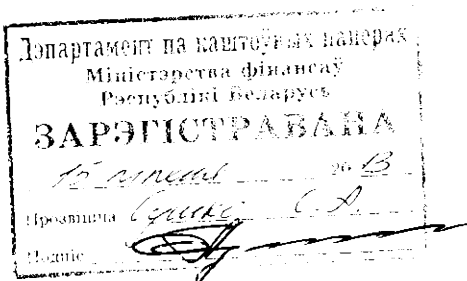 Дэпартамент па каштоўных паперах
Міністэрства фінансаў
Рэспублікі Беларусь
ЗАРЭГІСТРАВАНА
15 2013
Прозвішча С.А.
Подпіс